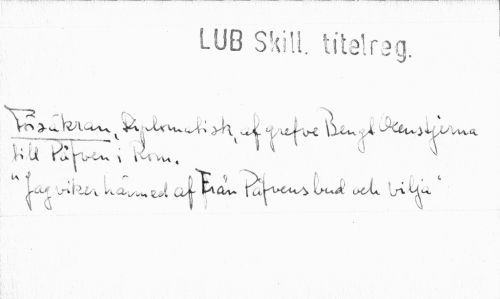 LUB Skill. titelreg.
Försäkran, Diplomatisk, af grefve Bengt Oxenstjerna
till Påfven i Rom.
"Jag viker härmed af Från Påfvens bud och vilja"